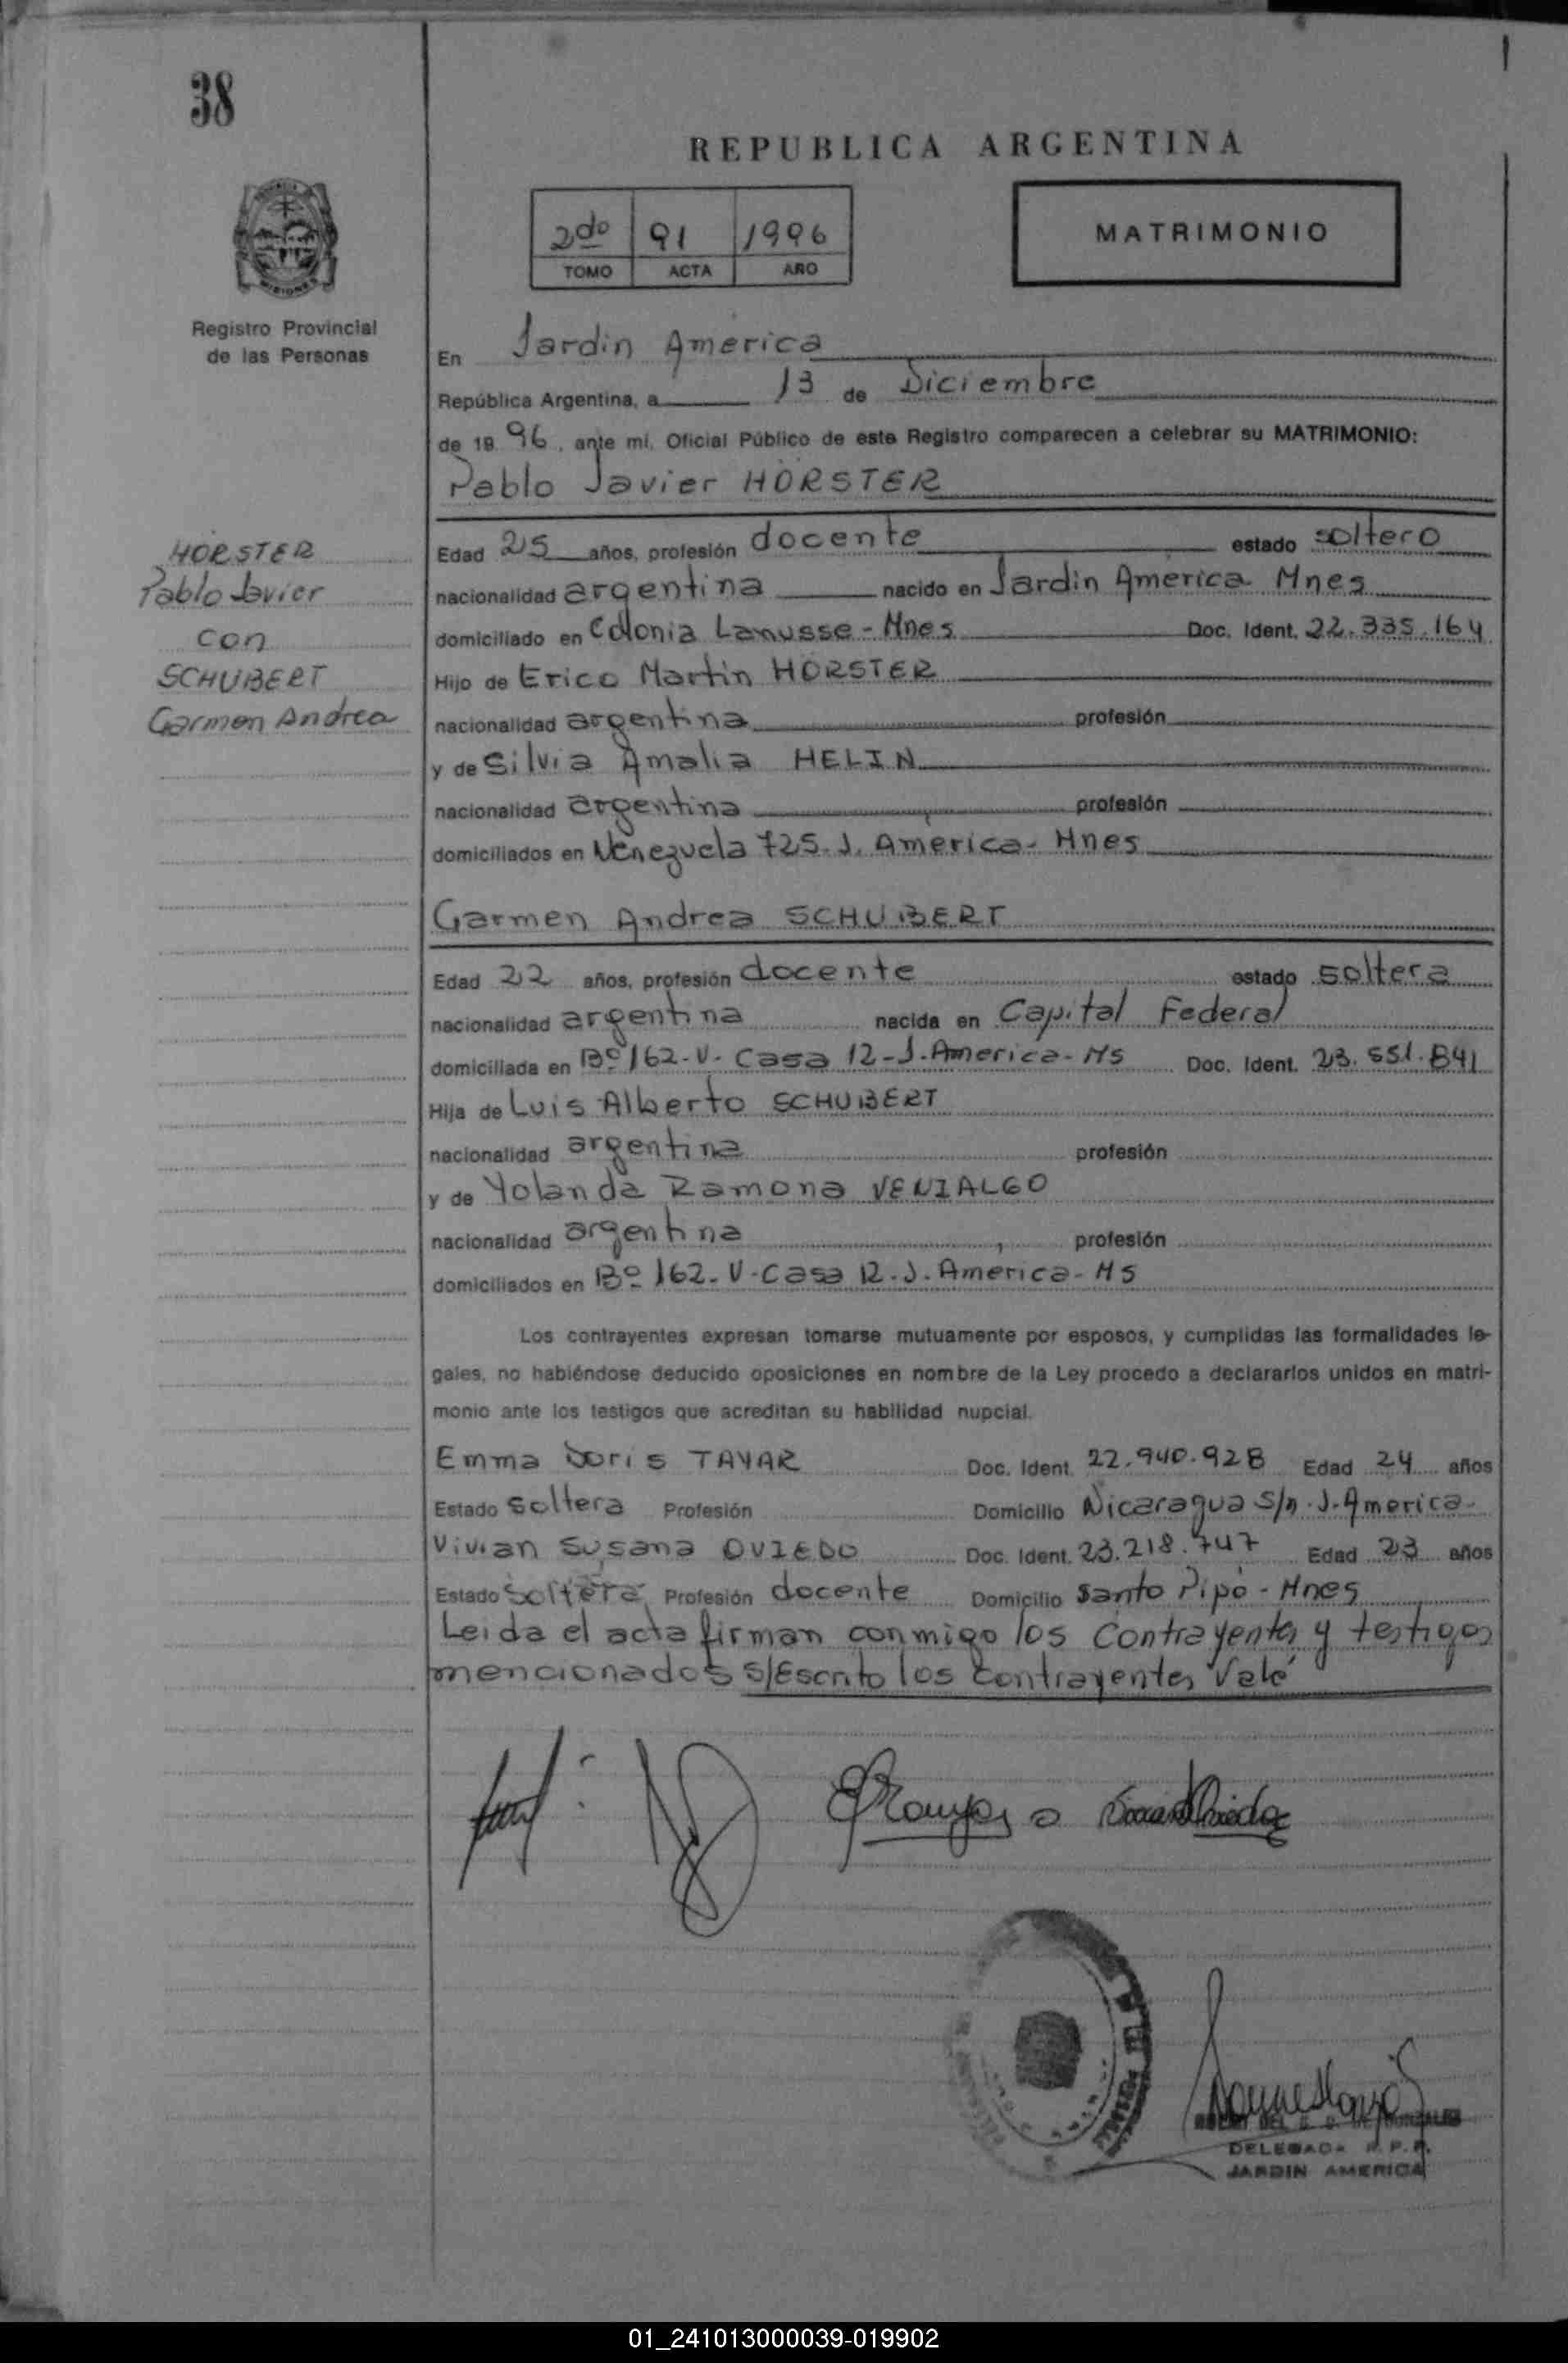 38
REPUBLICA ARGENTINA
2do 91 1996
TOMO ACTA AÑO
MATRIMONIO
MISIONES
Registro Provincial
de las Personas
En Jardin America
República Argentina, a 13 de Diciembre
de 19 96, ante mi, Oficial Público de este Registro comparecen a celebrar su MATRIMONIO:
Pablo Javier HORSTER
HORSTER
Pablo Javier
con
SCHUBERT
Carmen Andrea
Edad 25 años, profesión docente estado soltero
nacionalidad argentina nacido en Jardin America Mnes
domiciliado en Colonia Lanusse - Mnes Doc. Ident. 22.335.164
Hijo de Erico Martin HORSTER
nacionalidad argentina profesión
y de Silvia Amalia HELIN
nacionalidad argentina profesión
domiciliados en Venezuela 725. J. America - Mnes
Carmen Andrea SCHUBERT
Edad 22 años, profesión docente estado soltera
nacionalidad argentina nacida en Capital Federal
domiciliada en Bº 162-V- Casa 12-J. America- Ms Doc. Ident. 23.551.841
Hija de Luis Alberto SCHUBERT
nacionalidad argentina profesión
y de Yolanda Ramona VENIALGO
nacionalidad argentina profesión
domiciliados en Bº 162-V-Casa 12-J. America- Ms
Los contrayentes expresan tomarse mutuamente por esposos, y cumplidas las formalidades le-
gales, no habiéndose deducido oposiciones en nombre de la Ley procedo a declararlos unidos en matri-
monio ante los testigos que acreditan su habilidad nupcial.
Emma Doris TAYAR Doc. Ident. 22.940.928 Edad 24 años
Estado soltera Profesión Domicilio Nicaragua s/n. J. America-
Vivian Susana OVIEDO Doc. Ident. 23.218.747 Edad 23 años
Estado soltera Profesión docente Domicilio Santo Pipó - Mnes
Leida el acta firman conmigo los contrayentes y testigos
mencionados s/Escrito los contrayentes Vale
DELEGADA R.P.P.
JARDIN AMERICA
01_241013000039-019902